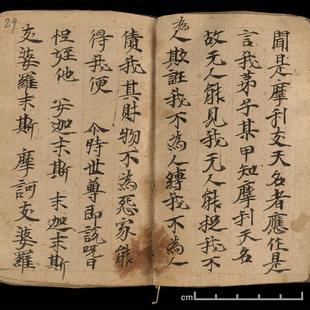 聞是摩利支天名者應作是
言我弟子某甲知摩利支天名
故无人能見我无人能捉我不
為人欺誑我不為人縛我不為人
債我其財物不為惡家能
得我便 尒時世尊即說呪曰
怛姪他 安迦末斯 末迦末斯
支婆羅末斯 摩訶支婆羅
29
cm